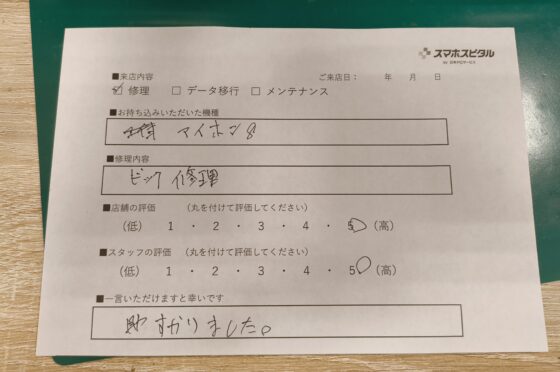 スマホスピタル
■来店内容 ご来店日： 年 月 日
☑ 修理 □ データ移行 □ メンテナンス
■お持ち込みいただいた機種
アイホン8
■修理内容
修理
■店舗の評価 （丸を付けて評価してください）
（低） 1 ・ 2 ・ 3 ・ 4 ・ 5 （高）
■スタッフの評価 （丸を付けて評価してください）
（低） 1 ・ 2 ・ 3 ・ 4 ・ 5 （高）
■一言いただけますと幸いです
助すかりました。